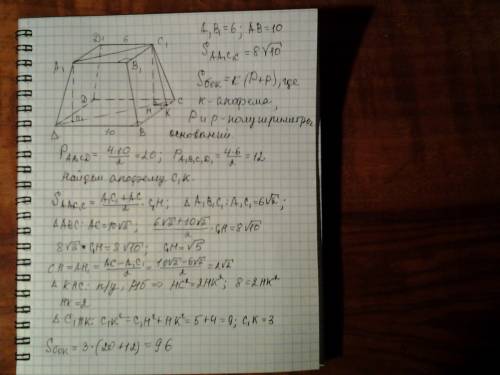 A₁B₁=6; AB=10
S_AA₁C₁C=8√10
Sбок=к(P+p), где
к-апофема,
P и p-полупериметры
оснований
P_ABCD=4·10/2=20; P_A₁B₁C₁D₁=4·6/2=12
Найдём апофему C₁K.
S_AA₁C₁C=A₁C₁+AC/2·C₁H; ΔA₁B₁C₁: A₁C₁=6√2;
ΔABC: AC=10√2; 6√2+10√2/2·C₁H=8√10
8√2·C₁H=8√10; C₁H=√5
CH=AH₁=AC-A₁C₁/2=10√2-6√2/2=2√2
ΔKHC: п/у, р/б => HC²=2HK²; 8=2HK²
HK=2
ΔC₁HK: C₁K²=C₁H²+HK²=5+4=9; C₁K=3
Sбок=3·(20+12)=96
D₁ 6 C₁
A₁ B₁
D H C
K
A 10 B